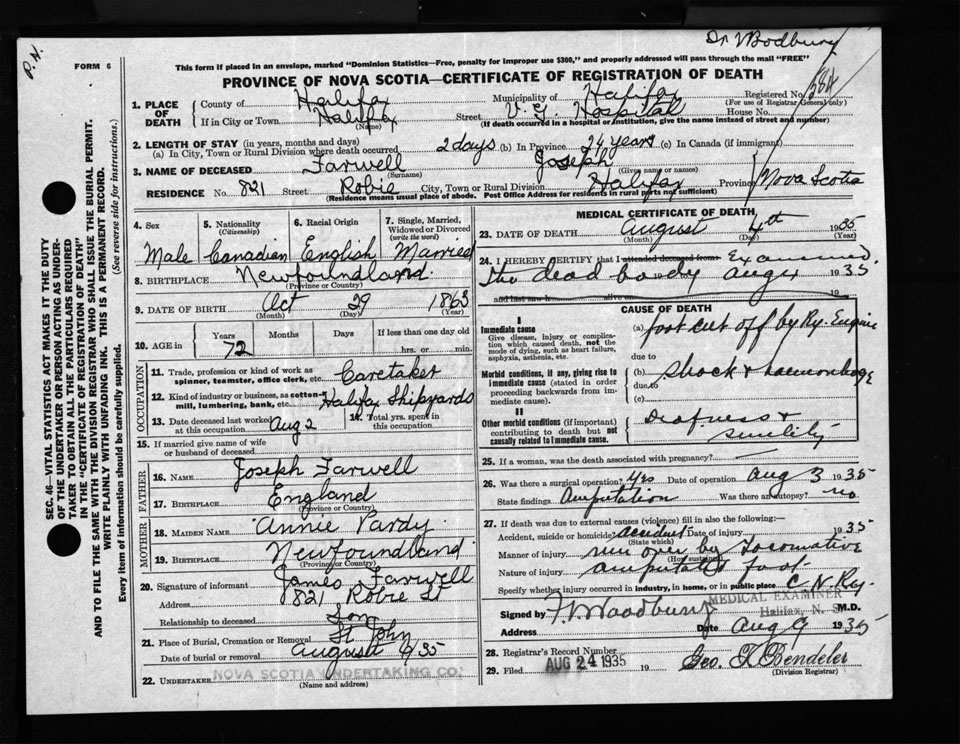 P. N.
Dr Woodbury
FORM 6
This form if placed in an envelope, marked "Dominion Statistics—Free, penalty for improper use $300," and properly addressed will pass through the mail "FREE"
PROVINCE OF NOVA SCOTIA—CERTIFICATE OF REGISTRATION OF DEATH
SEC. 46—VITAL STATISTICS ACT MAKES IT THE DUTY
OF THE UNDERTAKER OR PERSON ACTING AS UNDER-
TAKER TO OBTAIN ALL THE PARTICULARS REQUIRED
IN THE "CERTIFICATE OF REGISTRATION OF DEATH"
AND TO FILE THE SAME WITH THE DIVISION REGISTRAR WHO SHALL ISSUE THE BURIAL PERMIT.
WRITE PLAINLY WITH UNFADING INK. THIS IS A PERMANENT RECORD.
Every item of information should be carefully supplied. (See reverse side for instructions.)
1. PLACE OF DEATH
County of Halifax Municipality of Halifax Registered No.
(For use of Registrar General only)
If in City or Town Halifax Street V. G. Hospital House No.
(Name) (If death occurred in a hospital or institution, give the name instead of street and number)
2. LENGTH OF STAY (in years, months and days)
(a) In City, Town or Rural Division where death occurred 2 days (b) In Province 24 years (c) In Canada (if immigrant)
3. NAME OF DECEASED Farwell Joseph
(Surname) (Given name or names)
RESIDENCE No. 821 Street Robie City, Town or Rural Division Halifax Province Nova Scotia
(Residence means usual place of abode. Post Office Address for residents in rural parts not sufficient)
4. Sex Male
5. Nationality (Citizenship) Canadian
6. Racial Origin English
7. Single, Married, Widowed or Divorced (write the word) Married
8. BIRTHPLACE Newfoundland
(Province or Country)
9. DATE OF BIRTH Oct 29 1863
(Month) (Day) (Year)
10. AGE in Years Months Days If less than one day old
72 hrs. or min.
OCCUPATION
11. Trade, profession or kind of work as spinner, teamster, office clerk, etc. Caretaker
12. Kind of industry or business, as cotton-mill, lumbering, bank, etc. Halifax Shipyards
13. Date deceased last worked at this occupation Aug 2
14. Total yrs. spent in this occupation
15. If married give name of wife or husband of deceased
FATHER
16. NAME Joseph Farwell
17. BIRTHPLACE England
(Province or Country)
MOTHER
18. MAIDEN NAME Annie Vardy
19. BIRTHPLACE Newfoundland
(Province or Country)
20. Signature of informant James Farwell
Address 821 Robie St
Relationship to deceased Son
21. Place of Burial, Cremation or Removal St John
Date of burial or removal August 35
22. UNDERTAKER NOVA SCOTIA UNDERTAKING CO.
(Name and address)
MEDICAL CERTIFICATE OF DEATH
23. DATE OF DEATH August 4th 1935
(Month) (Day) (Year)
24. I HEREBY CERTIFY that I attended deceased from Examined
the dead body Aug 4 1935
and last saw h alive on 19
CAUSE OF DEATH
I
Immediate cause
Give disease, injury or complication which caused death, not the mode of dying, such as heart failure, asphyxia, asthenia, etc.
(a) foot cut off by Ry. Engine
due to
Morbid conditions, if any, giving rise to immediate cause (stated in order proceeding backwards from immediate cause).
(b) Shock & haemorrhage
due to
(c)
II
Other morbid conditions (if important) contributing to death but not causally related to immediate cause.
Deafness &
senility
25. If a woman, was the death associated with pregnancy?
26. Was there a surgical operation? Yes Date of operation Aug 3 1935
State findings Amputation Was there an autopsy? no
27. If death was due to external causes (violence) fill in also the following:—
Accident, suicide or homicide? accident Date of injury 1935
(State which)
Manner of injury run over by Locomotive
(How sustained)
Nature of injury amputated foot
Specify whether injury occurred in industry, in home, or in public place C N Ry.
MEDICAL EXAMINER
Halifax, N. S.
Signed by F. V. Woodbury M.D.
Address Date Aug 9 1935
28. Registrar's Record No.
29. Filed AUG 24 1935 19 Geo. Bendeler
(Division Registrar)